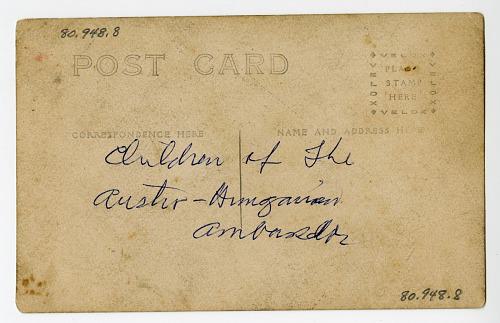 80.948.8
POST CARD
VELOX
PLACE
STAMP
HERE
VELOX
CORRESPONDENCE HERE
NAME AND ADDRESS HERE
Children of The
Austro-Hungarian
Ambassador
80.948.8